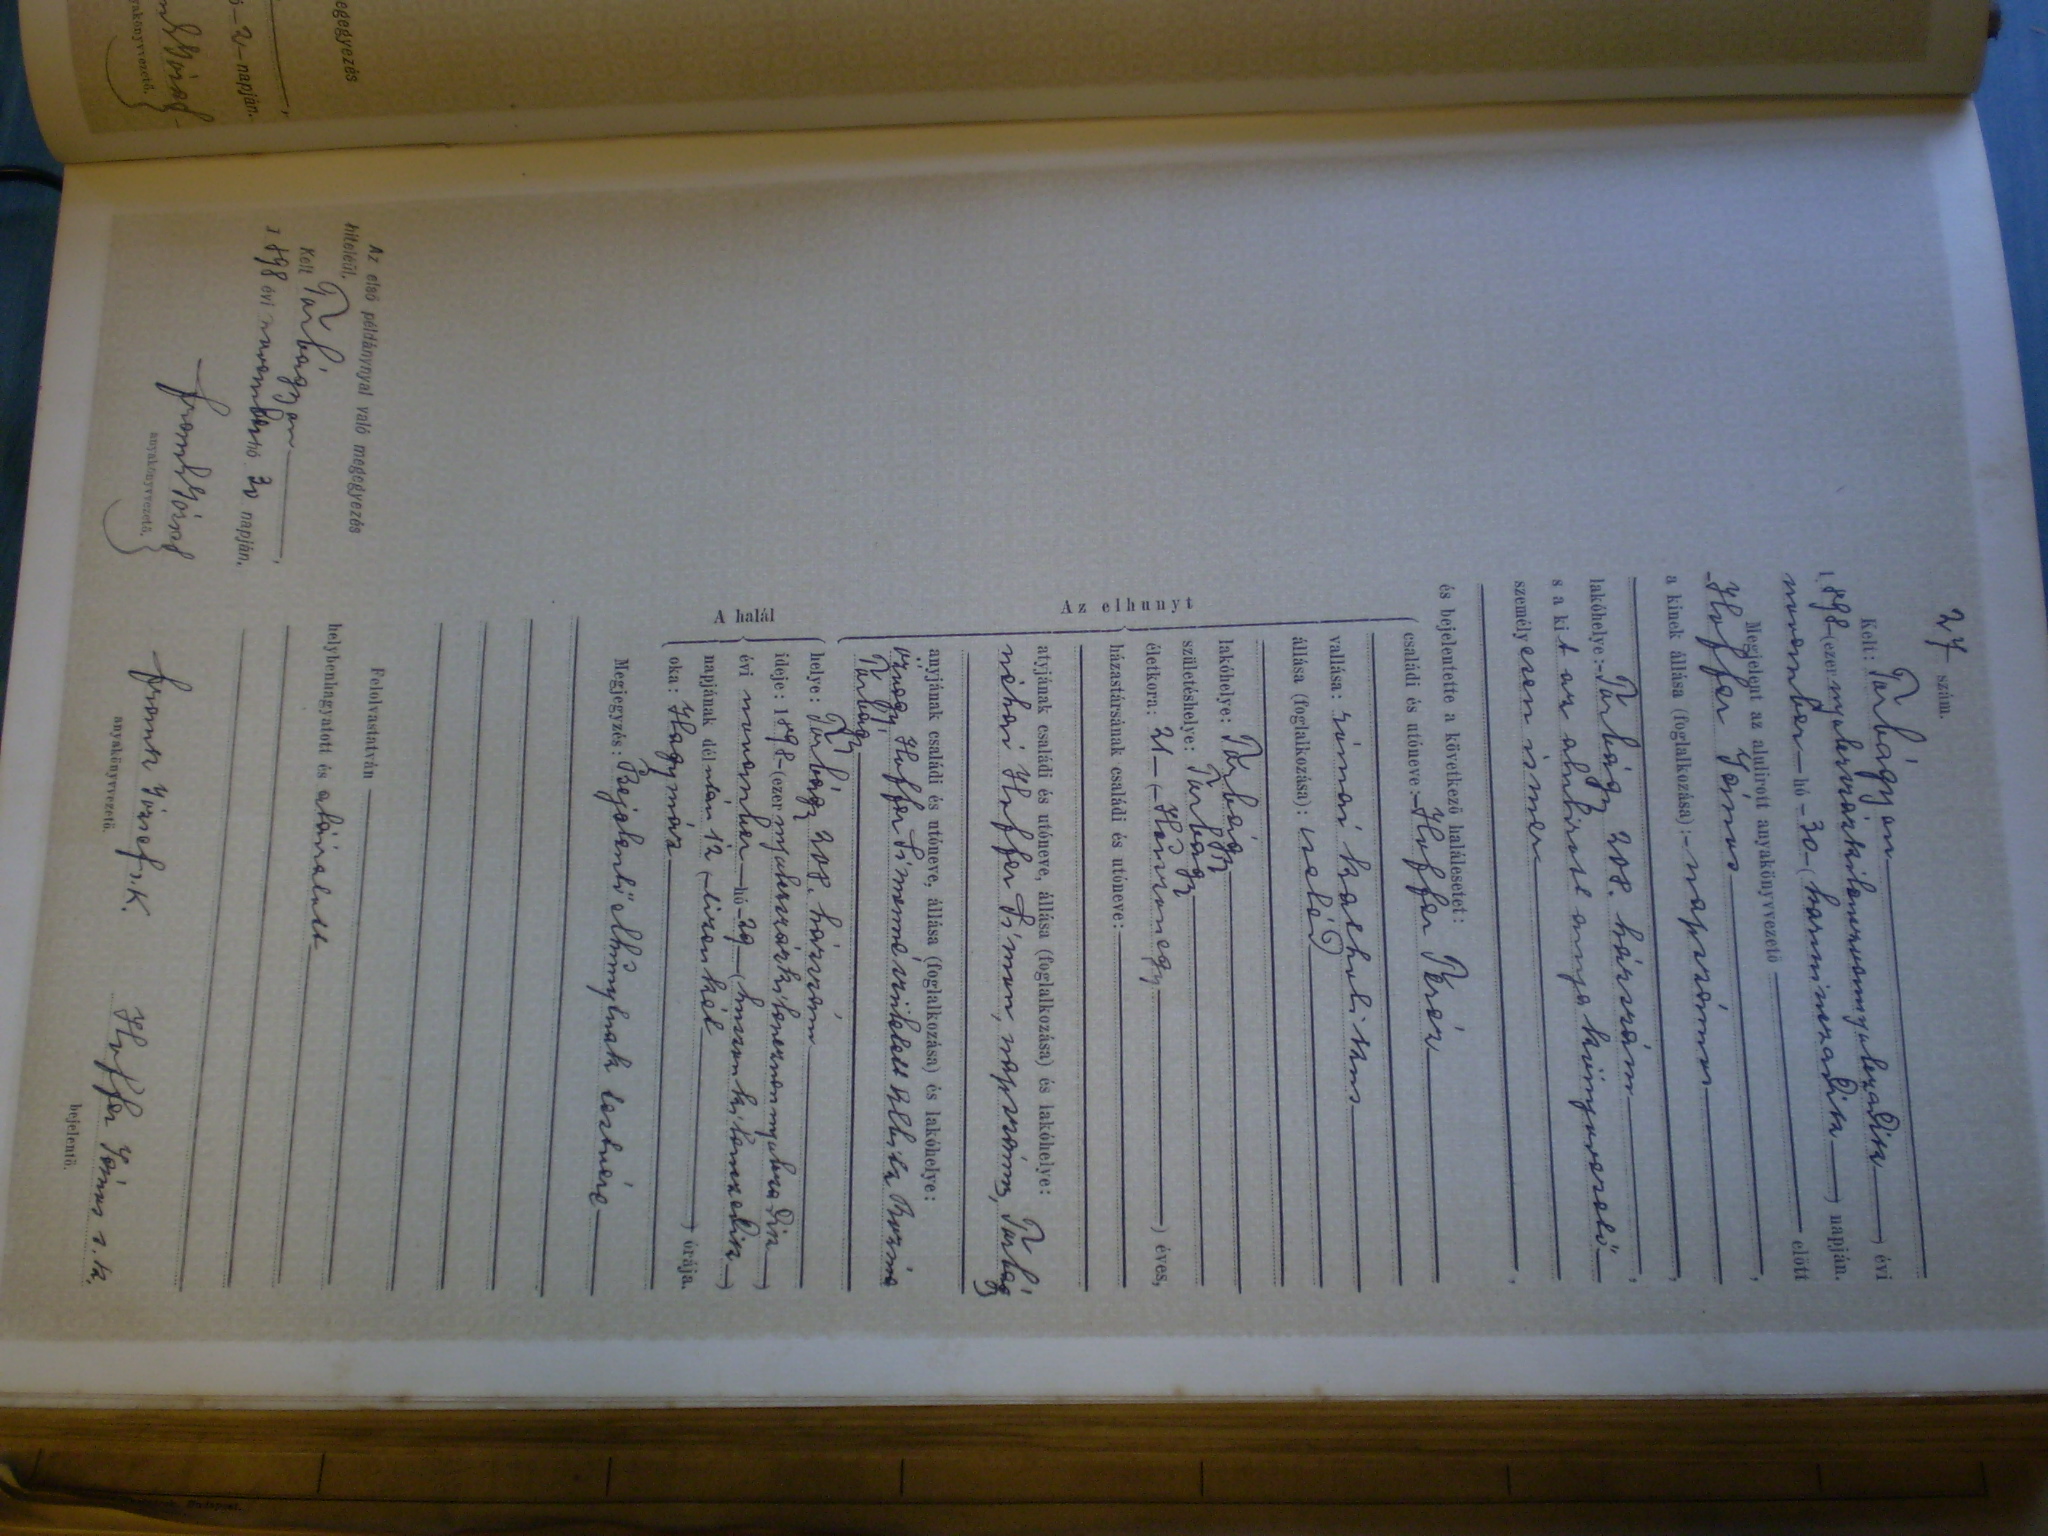 egegyezés
ó 2 napján.
anyakönyvvezető.
27 szám.
Kelt: Torbágyon
1898 (ezernyolczszázkilenczvennyolczadik) évi
november hó 30 (harminczadik) napján.
Megjelent az alulirott anyakönyvvezető előtt
Hoffer János,
a kinek állása (foglalkozása): napszámos,
lakóhelye: Torbágy 208. házszám,
s a kit az alulirott anyakönyvvezető
személyesen ismer,
és bejelentette a következő halálesetet:
családi és utóneve: Hoffer Teréz
vallása: római katholikus
állása (foglalkozása): cseléd
lakóhelye: Torbágy
születéshelye: Torbágy
életkora: 21 (Húszonegy) éves,
házastársának családi és utóneve:
atyjának családi és utóneve, állása (foglalkozása) és lakóhelye:
néhai Hoffer Simon, napszámos, Torbágy
anyjának családi és utóneve, állása (foglalkozása) és lakóhelye:
özvegy Hoffer Simonné született
Torbágy
helye: Torbágy 208. házszám
ideje: 1898 (ezernyolczszázkilenczvennyolczadik)
évi november hó 29 (huszonkilenczedik)
napjának délután 12 (tizenkét) órája.
oka: Hagymáz
Megjegyzés: Bejelentő elhunytnak testvére
Az elhunyt
A halál
Felolvastatván
helybenhagyatott és aláiratott
Fromk József s. k.
anyakönyvvezető.
Hoffer János s. k.
bejelentő.
Az első példánynyal való megegyezés
hiteléül.
Kelt Torbágyon,
1898 évi november hó 30 napján.
Fromk József
anyakönyvvezető.